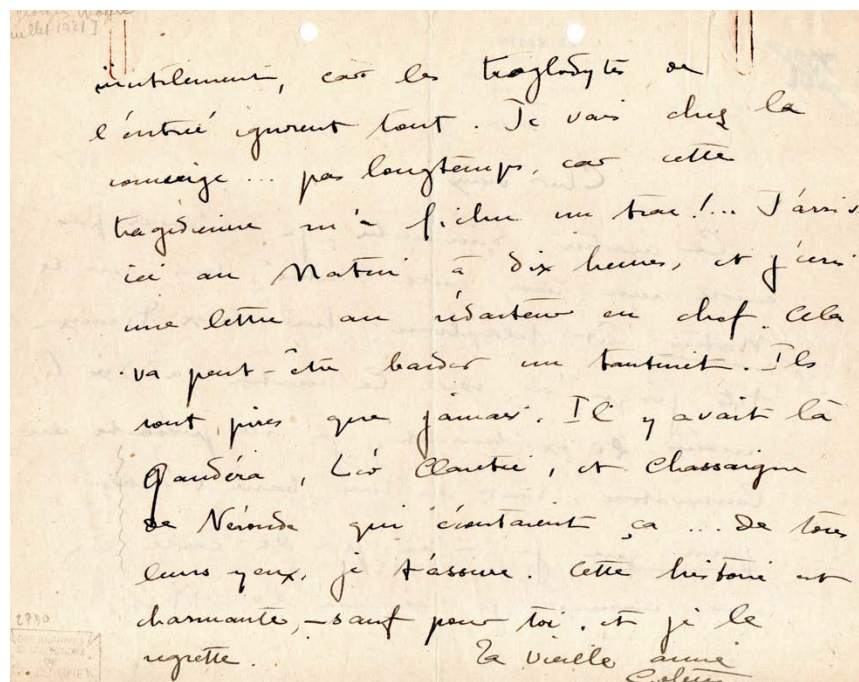 inutilement, car les troglodytes de
l'entrée ignorent tout. Je vais chez la
concierge ... pas longtemps, car cette
tragédienne m'a fichu un trac !... J'arrive
ici au Matin à dix heures, et j'écris
une lettre au rédacteur en chef. Cela
va peut-être barder un tantinet. Ils
sont pires que jamais. Il y avait là
Gandéra, Léo Claretie, et Chassaigne
de Néronde qui écoutaient ça ... de tous
leurs yeux, je t'assure. Cette histoire est
charmante, – sauf pour toi, et je le
regrette.
Ta vieille amie
Colette
2790